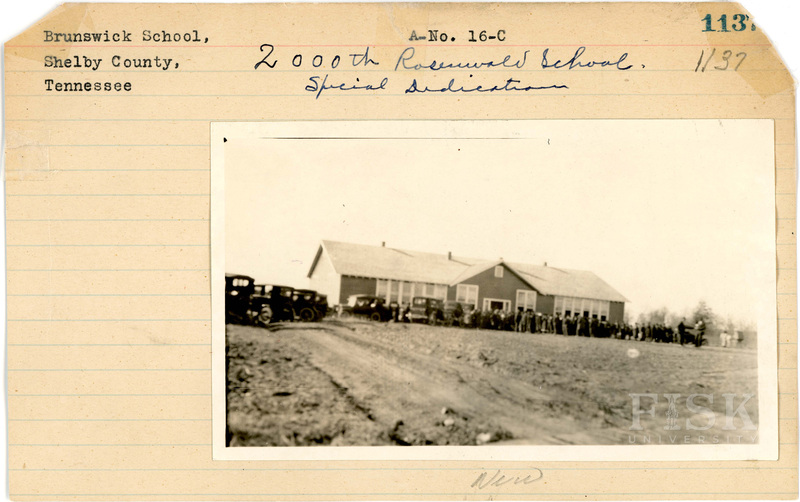 Brunswick School,
A-No. 16-C
1137
Shelby County,
2000th Rosenwald School.
1137
Tennessee
Special Dedication
FISK
UNIVERSITY
New